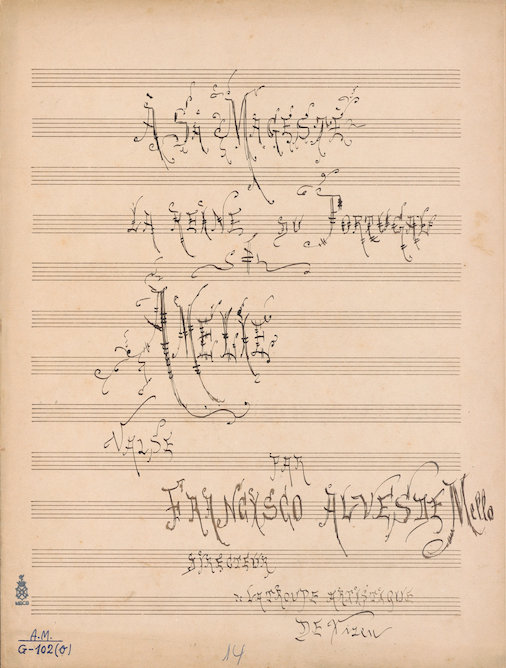 A SA MAGESTÉ
LA REINE DU PORTUGAL
AMELIE
VALSE
PAR
FRANCYSCO ALVES DE Mello
DIRECTEUR
LA TROUPE ARTISTIQUE
DE
A.M.
G-102(8)
14